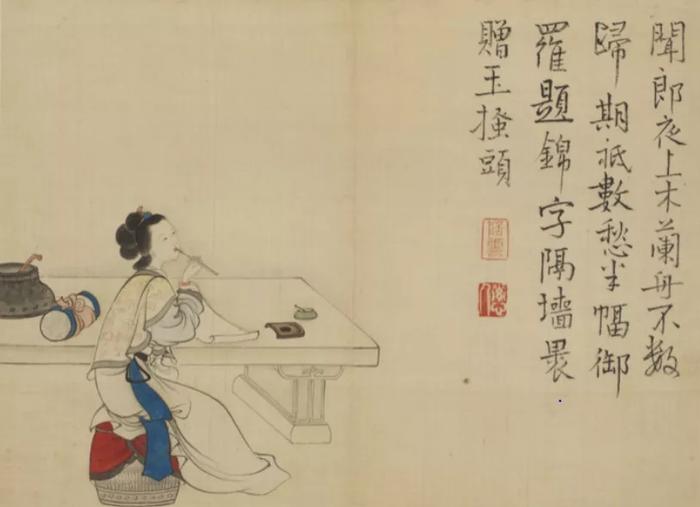 聞郎夜上木蘭舟不數
歸期祗數愁半幅御
羅題錦字隔墻裹
贈玉搔頭